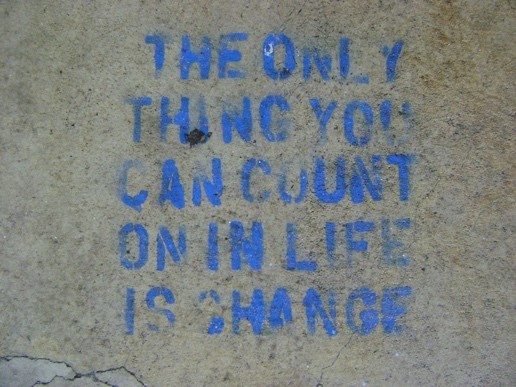 THE ONLY
THING YOU
CAN COUNT
ON IN LIFE
IS CHANGE